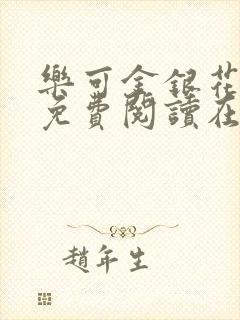 樂可金銀花
免費閱讀在
趙年生